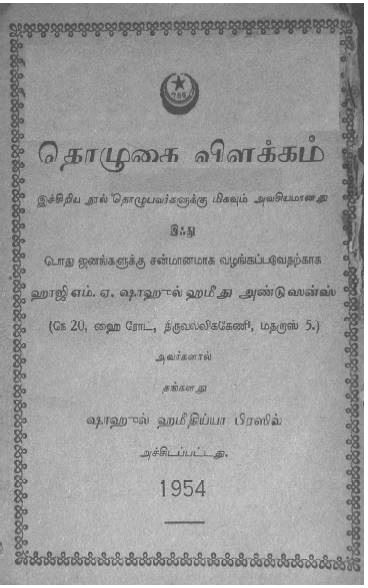 786
தொழுகை விளக்கம்
இச்சிறிய நூல் தொழுபவர்களுக்கு மிகவும் அவசியமானது
இஃது
பொது ஜனங்களுக்கு சன்மானமாக வழங்கப்படுவதற்காக
ஹாஜி எம். ஏ. ஷாஹுல் ஹமீது அண்டு ஸன்ஸ்
(நெ 20, ஹை ரோட், திருவல்லிக்கேணி, மதறாஸ் 5.)
அவர்களால்
தங்களது
ஷாஹுல் ஹமீதிய்யா பிரஸில்
அச்சிடப்பட்டது.
1954